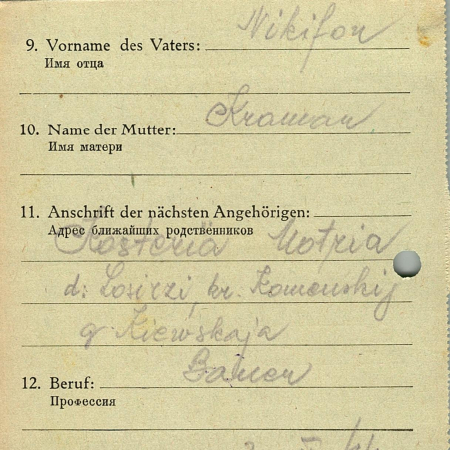 9. Vorname des Vaters: Nikifor
Имя отца
10. Name der Mutter: Kraman
Имя матери
11. Anschrift der nächsten Angehörigen:
Адрес ближайших родственников
Motria
d: Losizzi, kr. Komenskij
g Kiewskaja
12. Beruf: Bauer
Профессия